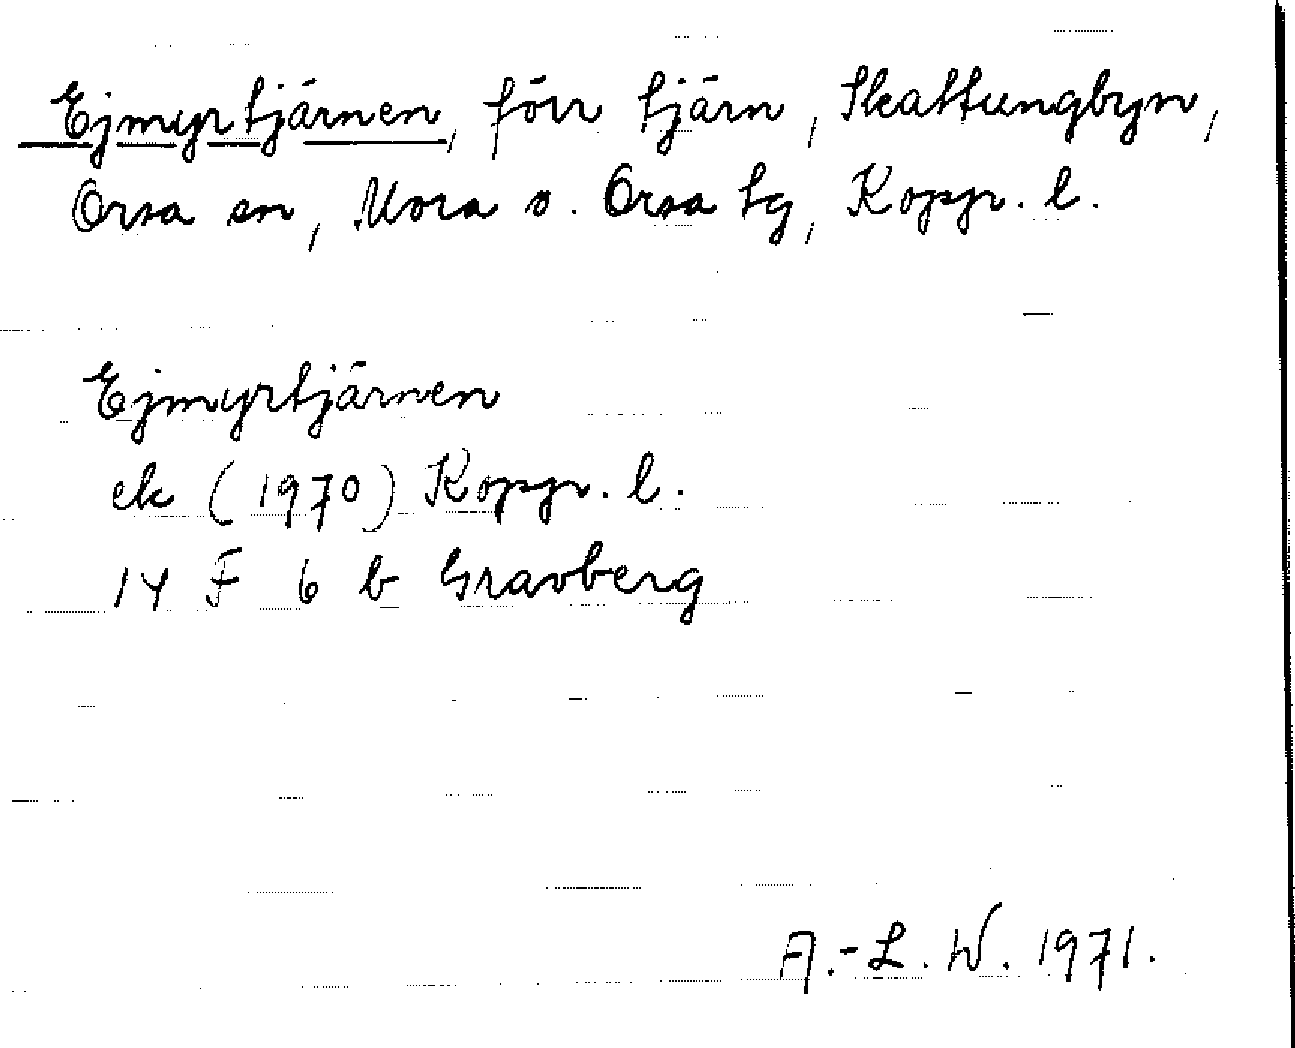 Ejmyrtjärnen, förr tjärn, Skattungbyn,
Orsa sn, Mora o. Orsa tg, Koppr. l.
Ejmyrtjärnen
ek (1970) Koppr. l.
14 F 6 b Gravberg
A.-L. W. 1971.